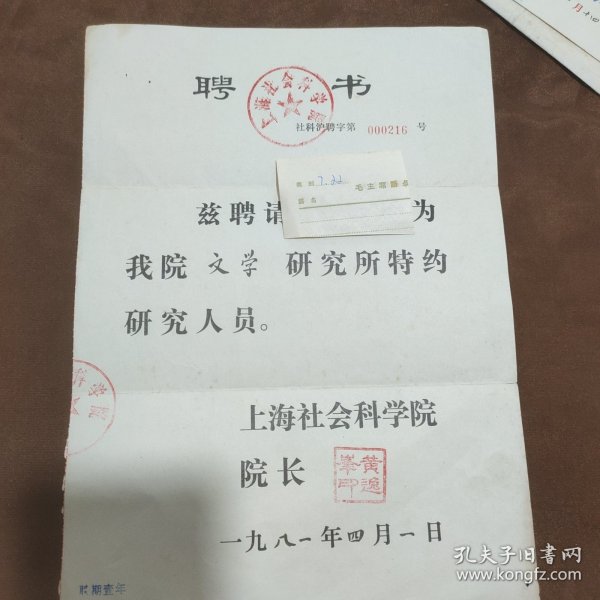 聘书
上海社会科学院
社科沪聘字第 000216 号
7.22
毛主席
兹聘请 为
我院 文学 研究所特约
研究人员。
科学院
上海社会科学院
院长
黄逸峯印
一九八一年四月一日
期壹年
孔夫子旧书网
www.kongfz.com
月十四